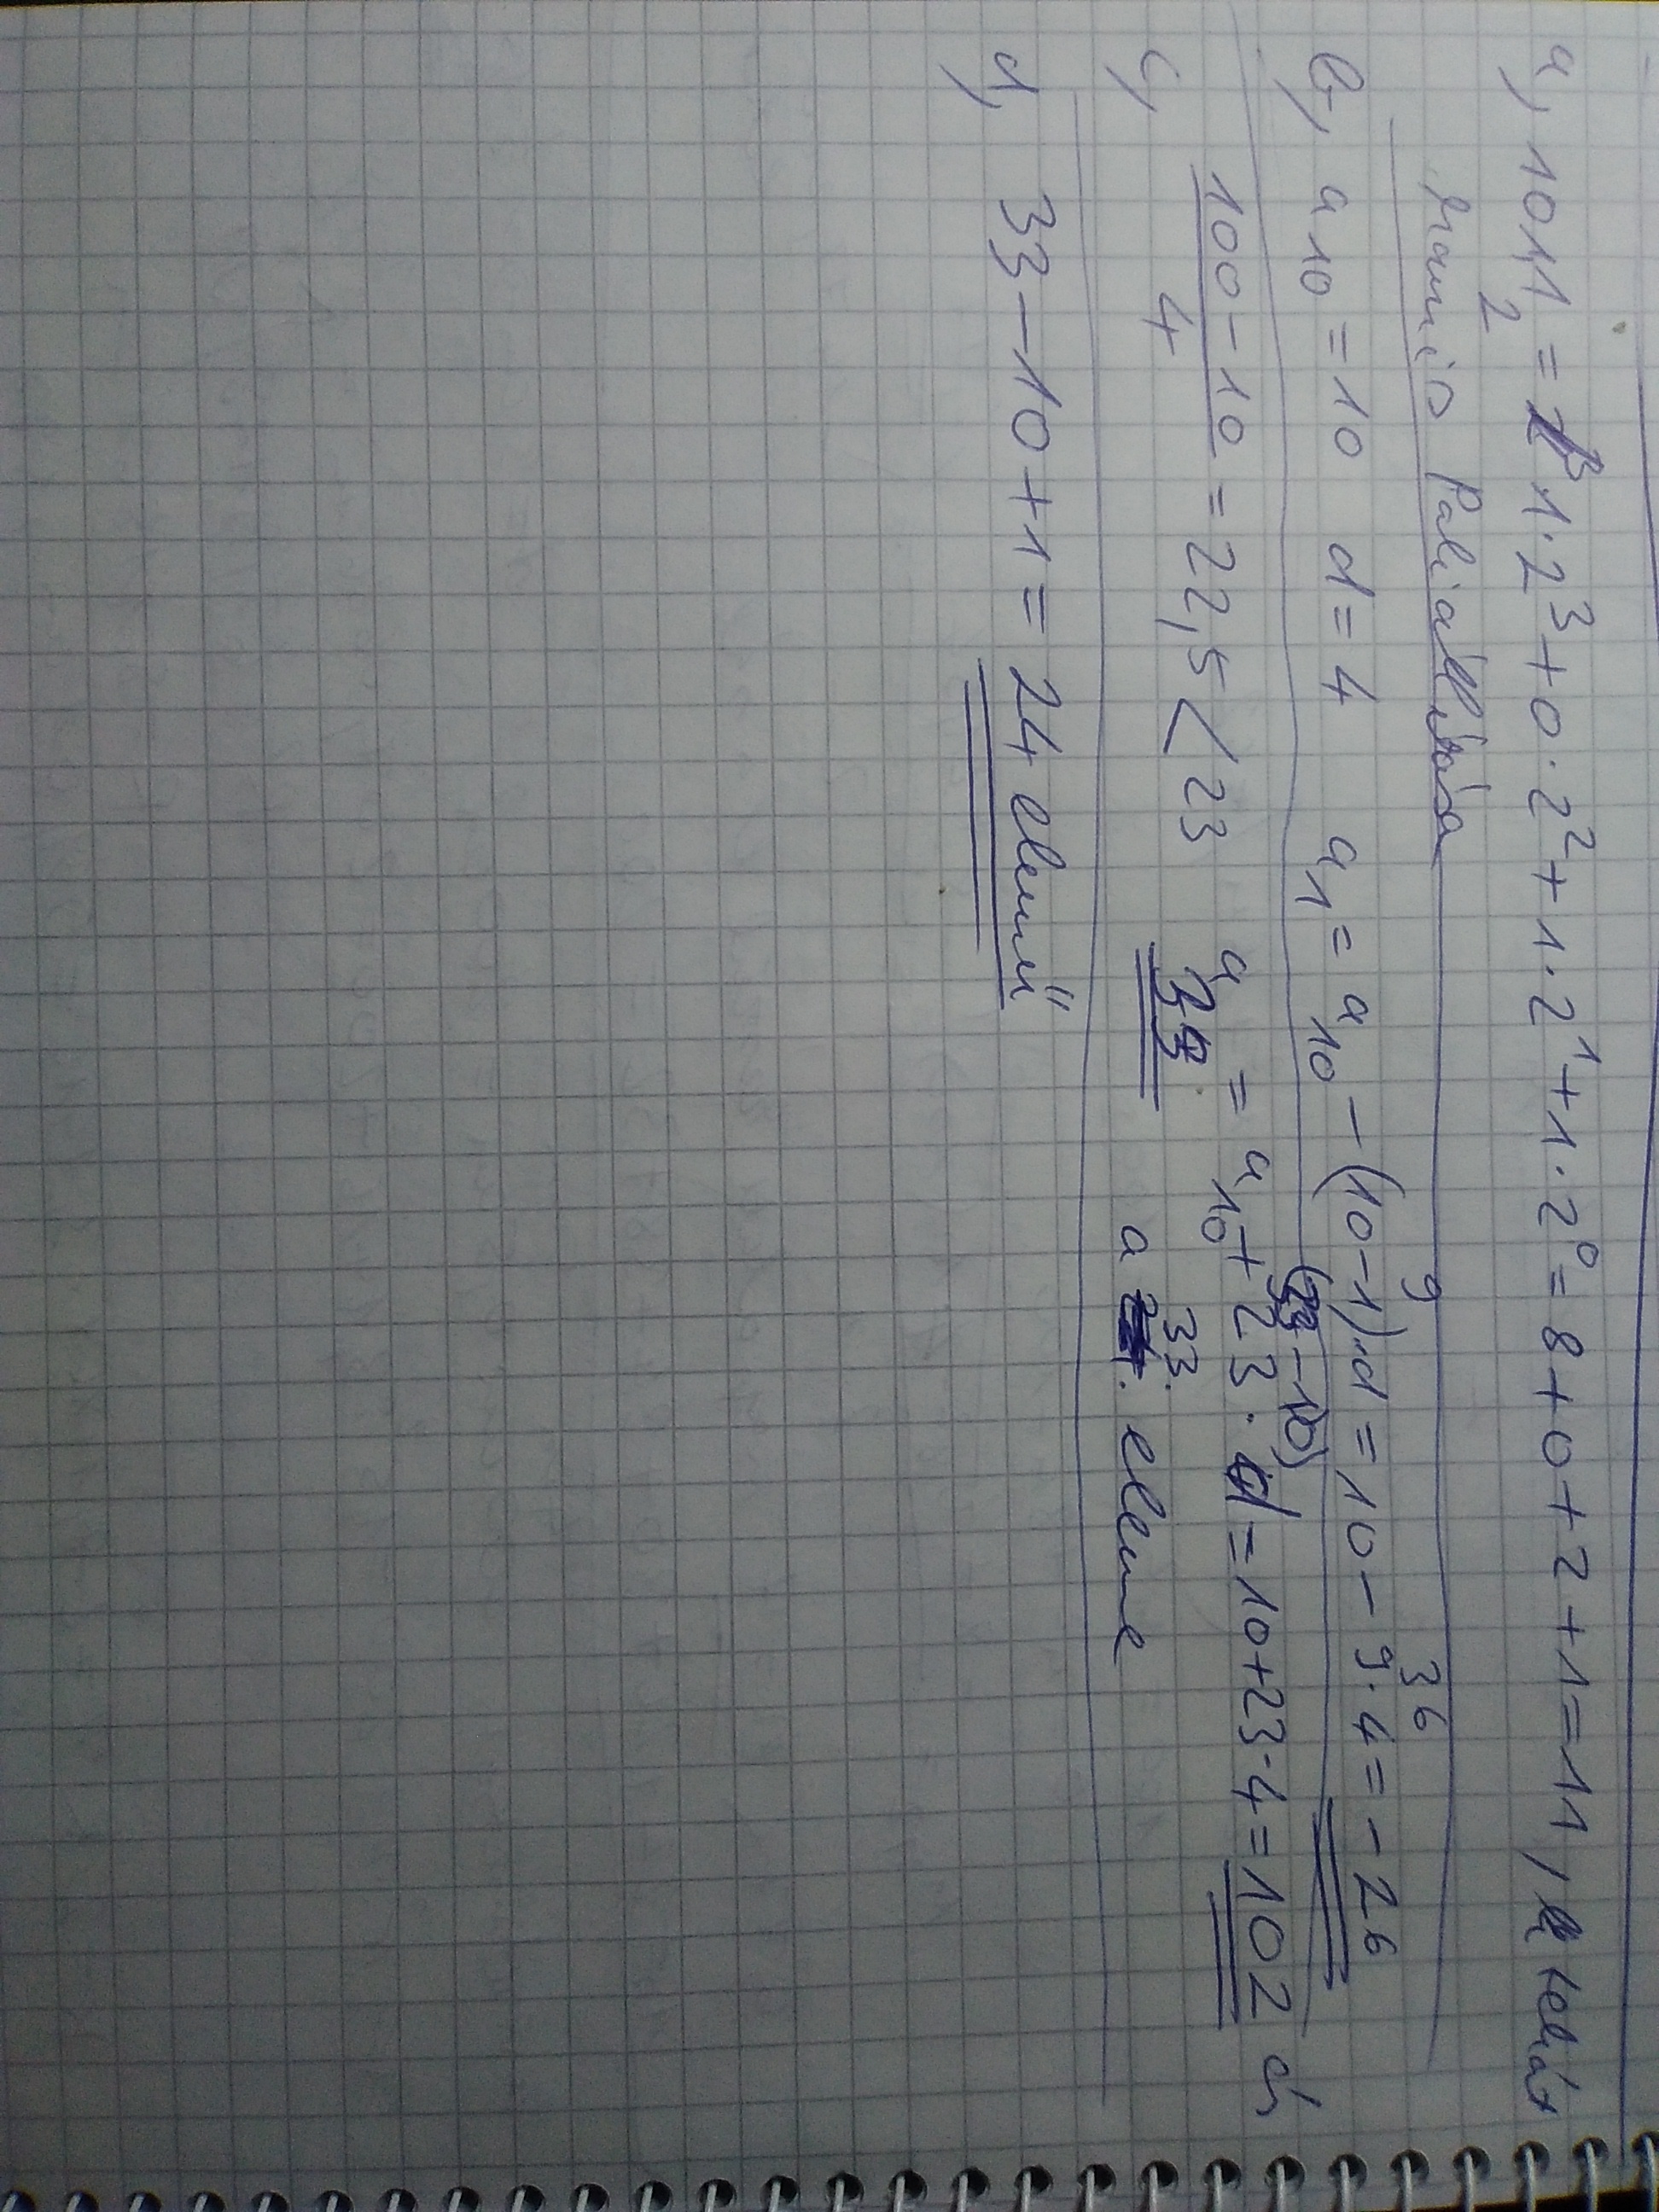 a, 1011₂ = 1·2³+0·2²+1·2¹+1·2⁰=8+0+2+1=11, tehát
Pali állítása
b, a₁₀=10 d=4 a₁=a₁₀-(10-1)·d=10-9·4=-26
9
36
c, (100-10)/4=22,5<23 a₃₃=a₁₀+23·d=10+23·4=102 és
(33-10)
a 33. eleme
d, 33-10+1=24 elemű